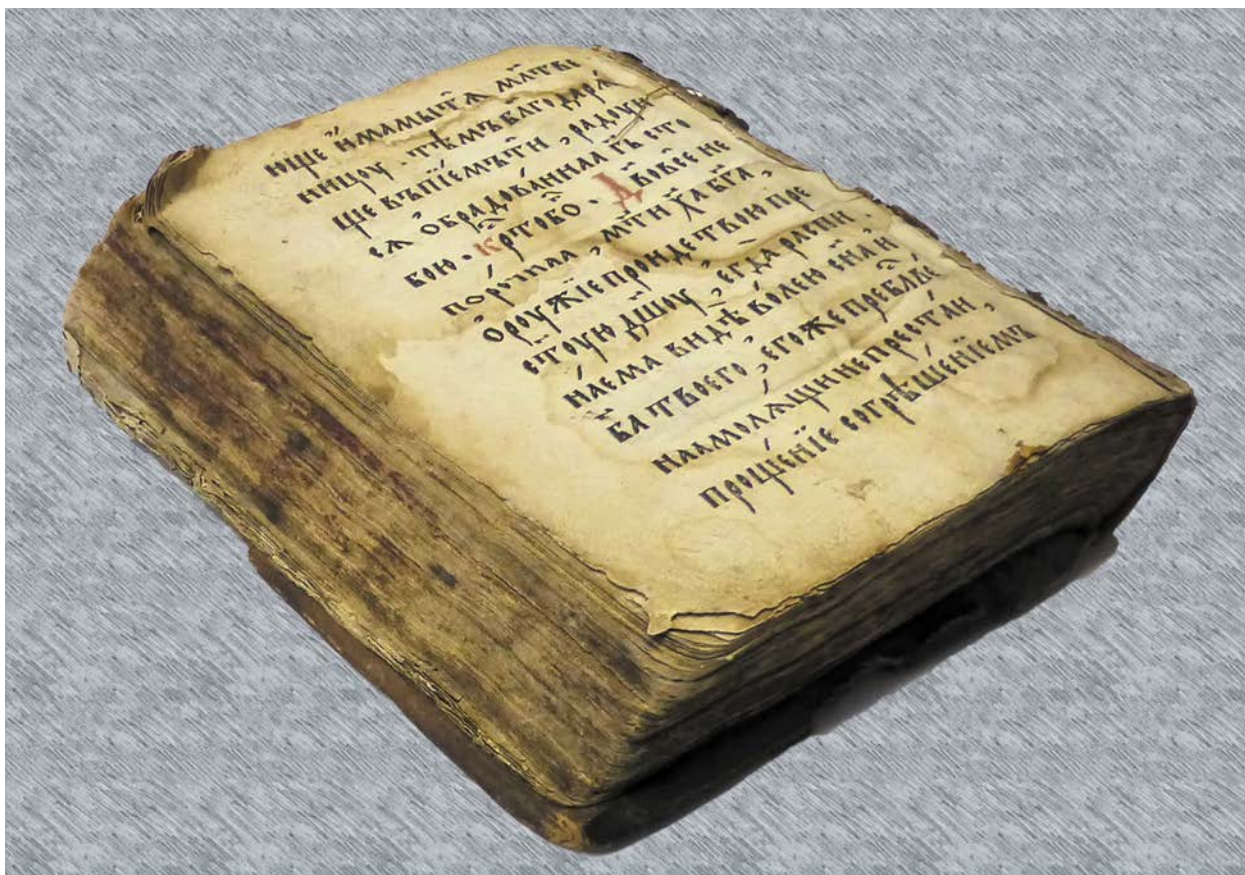 юще и҆мамы тѧ мл҃тве
ницоу · тѣмъ бл҃годарѧ́
ще въпїемъ ти , радоуи
сѧ обрадованнаа г҃ь с то
бою · кр҃тобо · Дв҃о все не
порочнаа , мт҃и х҃а б҃га ,
ороужїе проиде твою пре
ст҃оую дш҃оу , егда распи
наема видѣ волею сн҃а и
б҃а твоего , егоже пребл҃же
наа молѧщи непрестаи ,
прощенїе согрѣшенїемъ